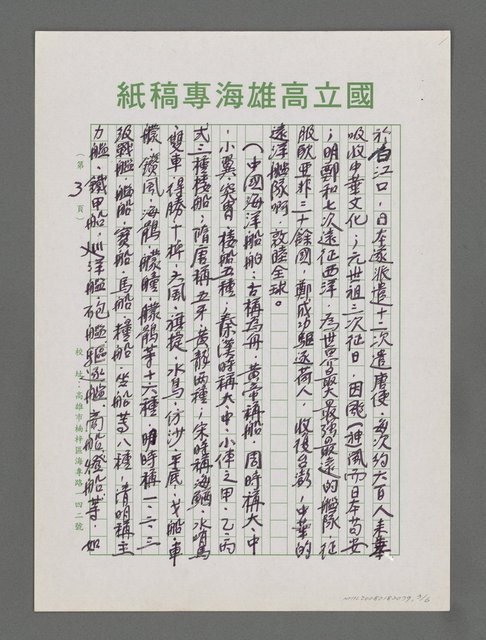 國立高雄海專稿紙
於白江口，日本遂派遣十二次遣唐使，每次約六百人來華
吸收中華文化；元世祖二次征日，因颱(神)風而日本苟安
；明鄭和七次遠征西洋，為世界最大最強最遠的艦隊，征
服歐里非三十餘國，鄭成功驅逐荷人，收復台彭，中華的
遠洋艦隊啊，敦睦全球。
(中國海洋船舶，古稱為舟，黃帝稱船，周時稱大、中
、小翼、突冒、樓船五種，秦漢時稱大、中、小俥之甲、乙、丙
式三種樓船；隋唐稱五牙、黃龍兩種；宋時稱海鰌、水哨馬
、雙車、得勝、十棹、大風、旗捉、水馬、仿沙、平底、戈船、車
艨、鑽風、海鶻、艨艟、艨鶻等十六種，明時稱一、二、三
級戰艦、艦船、寶船、馬船、糧船、坐船等八種，清朝稱主
力艦、鐵甲船、洋艦、砲艦、驅逐艦、商船、燈船等，如
(第3頁)
校址：高雄市楠梓區海專路一四二號
NMTL20080180079, 3/6